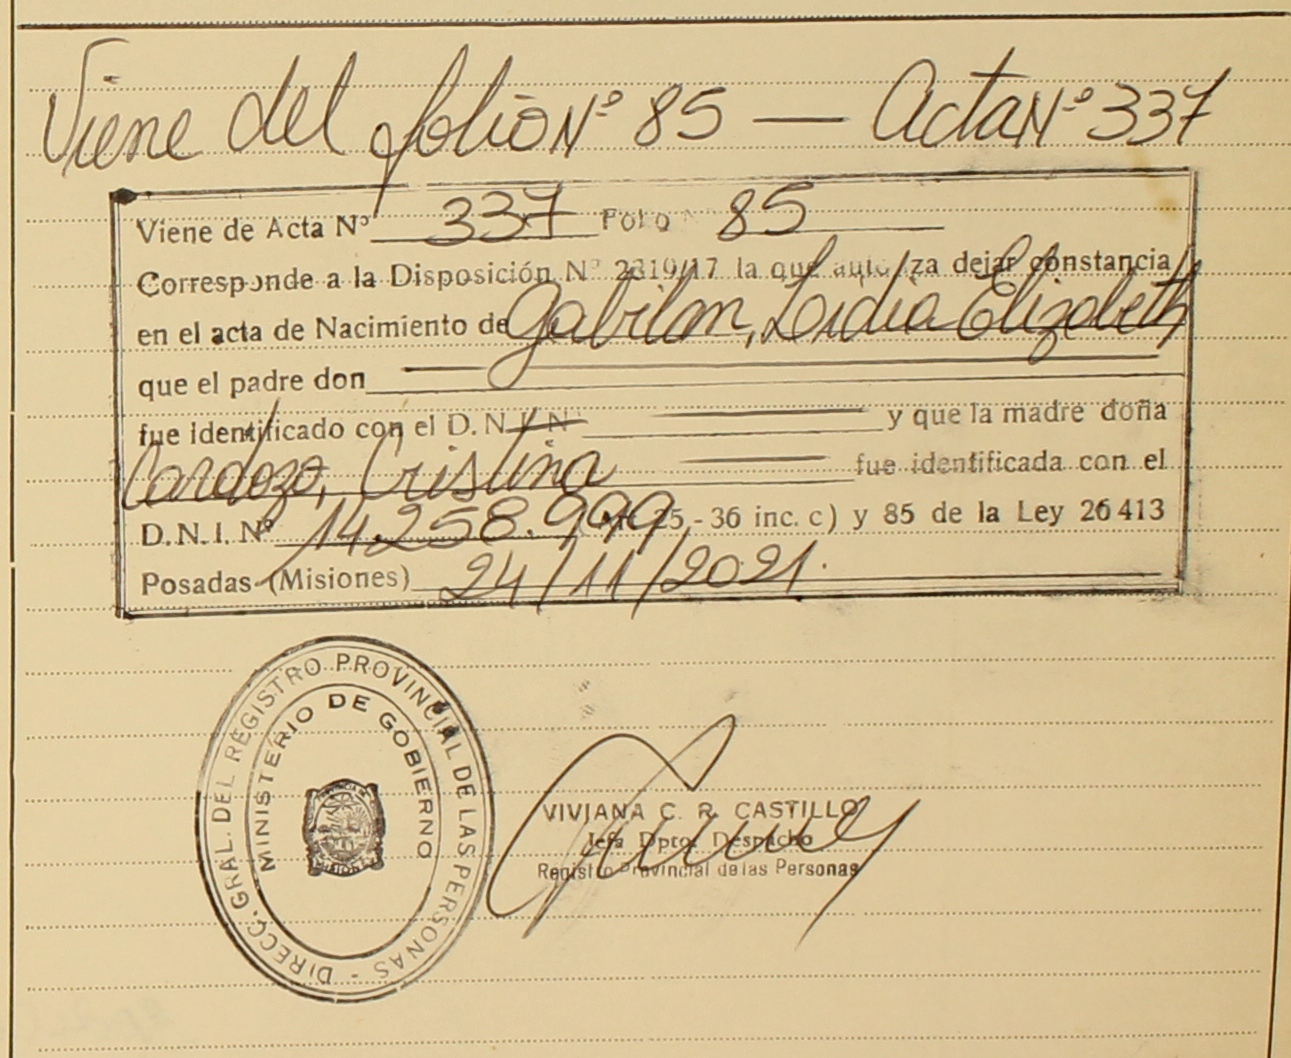 Viene del folio Nº 85 — Acta Nº 337
Viene de Acta Nº 337 Folio Nº 85
Corresponde a la Disposición Nº 2319/17 la que autoriza dejar constancia
en el acta de Nacimiento de Gabilan, Lidia Elizabeth
que el padre don
fue identificado con el D.N.I. Nº y que la madre doña
Cardozo, Cristina fue identificada con el
D.N.I. Nº 14.258.999 Art 25 - 36 inc. c) y 85 de la Ley 26413
Posadas (Misiones) 24/11/2021.
DIRECC. GRAL. DEL REGISTRO PROVINCIAL DE LAS PERSONAS -
MINISTERIO DE GOBIERNO
VIVIANA C. R. CASTILLO
Jefa Dpto. Despacho
Registro Provincial de las Personas